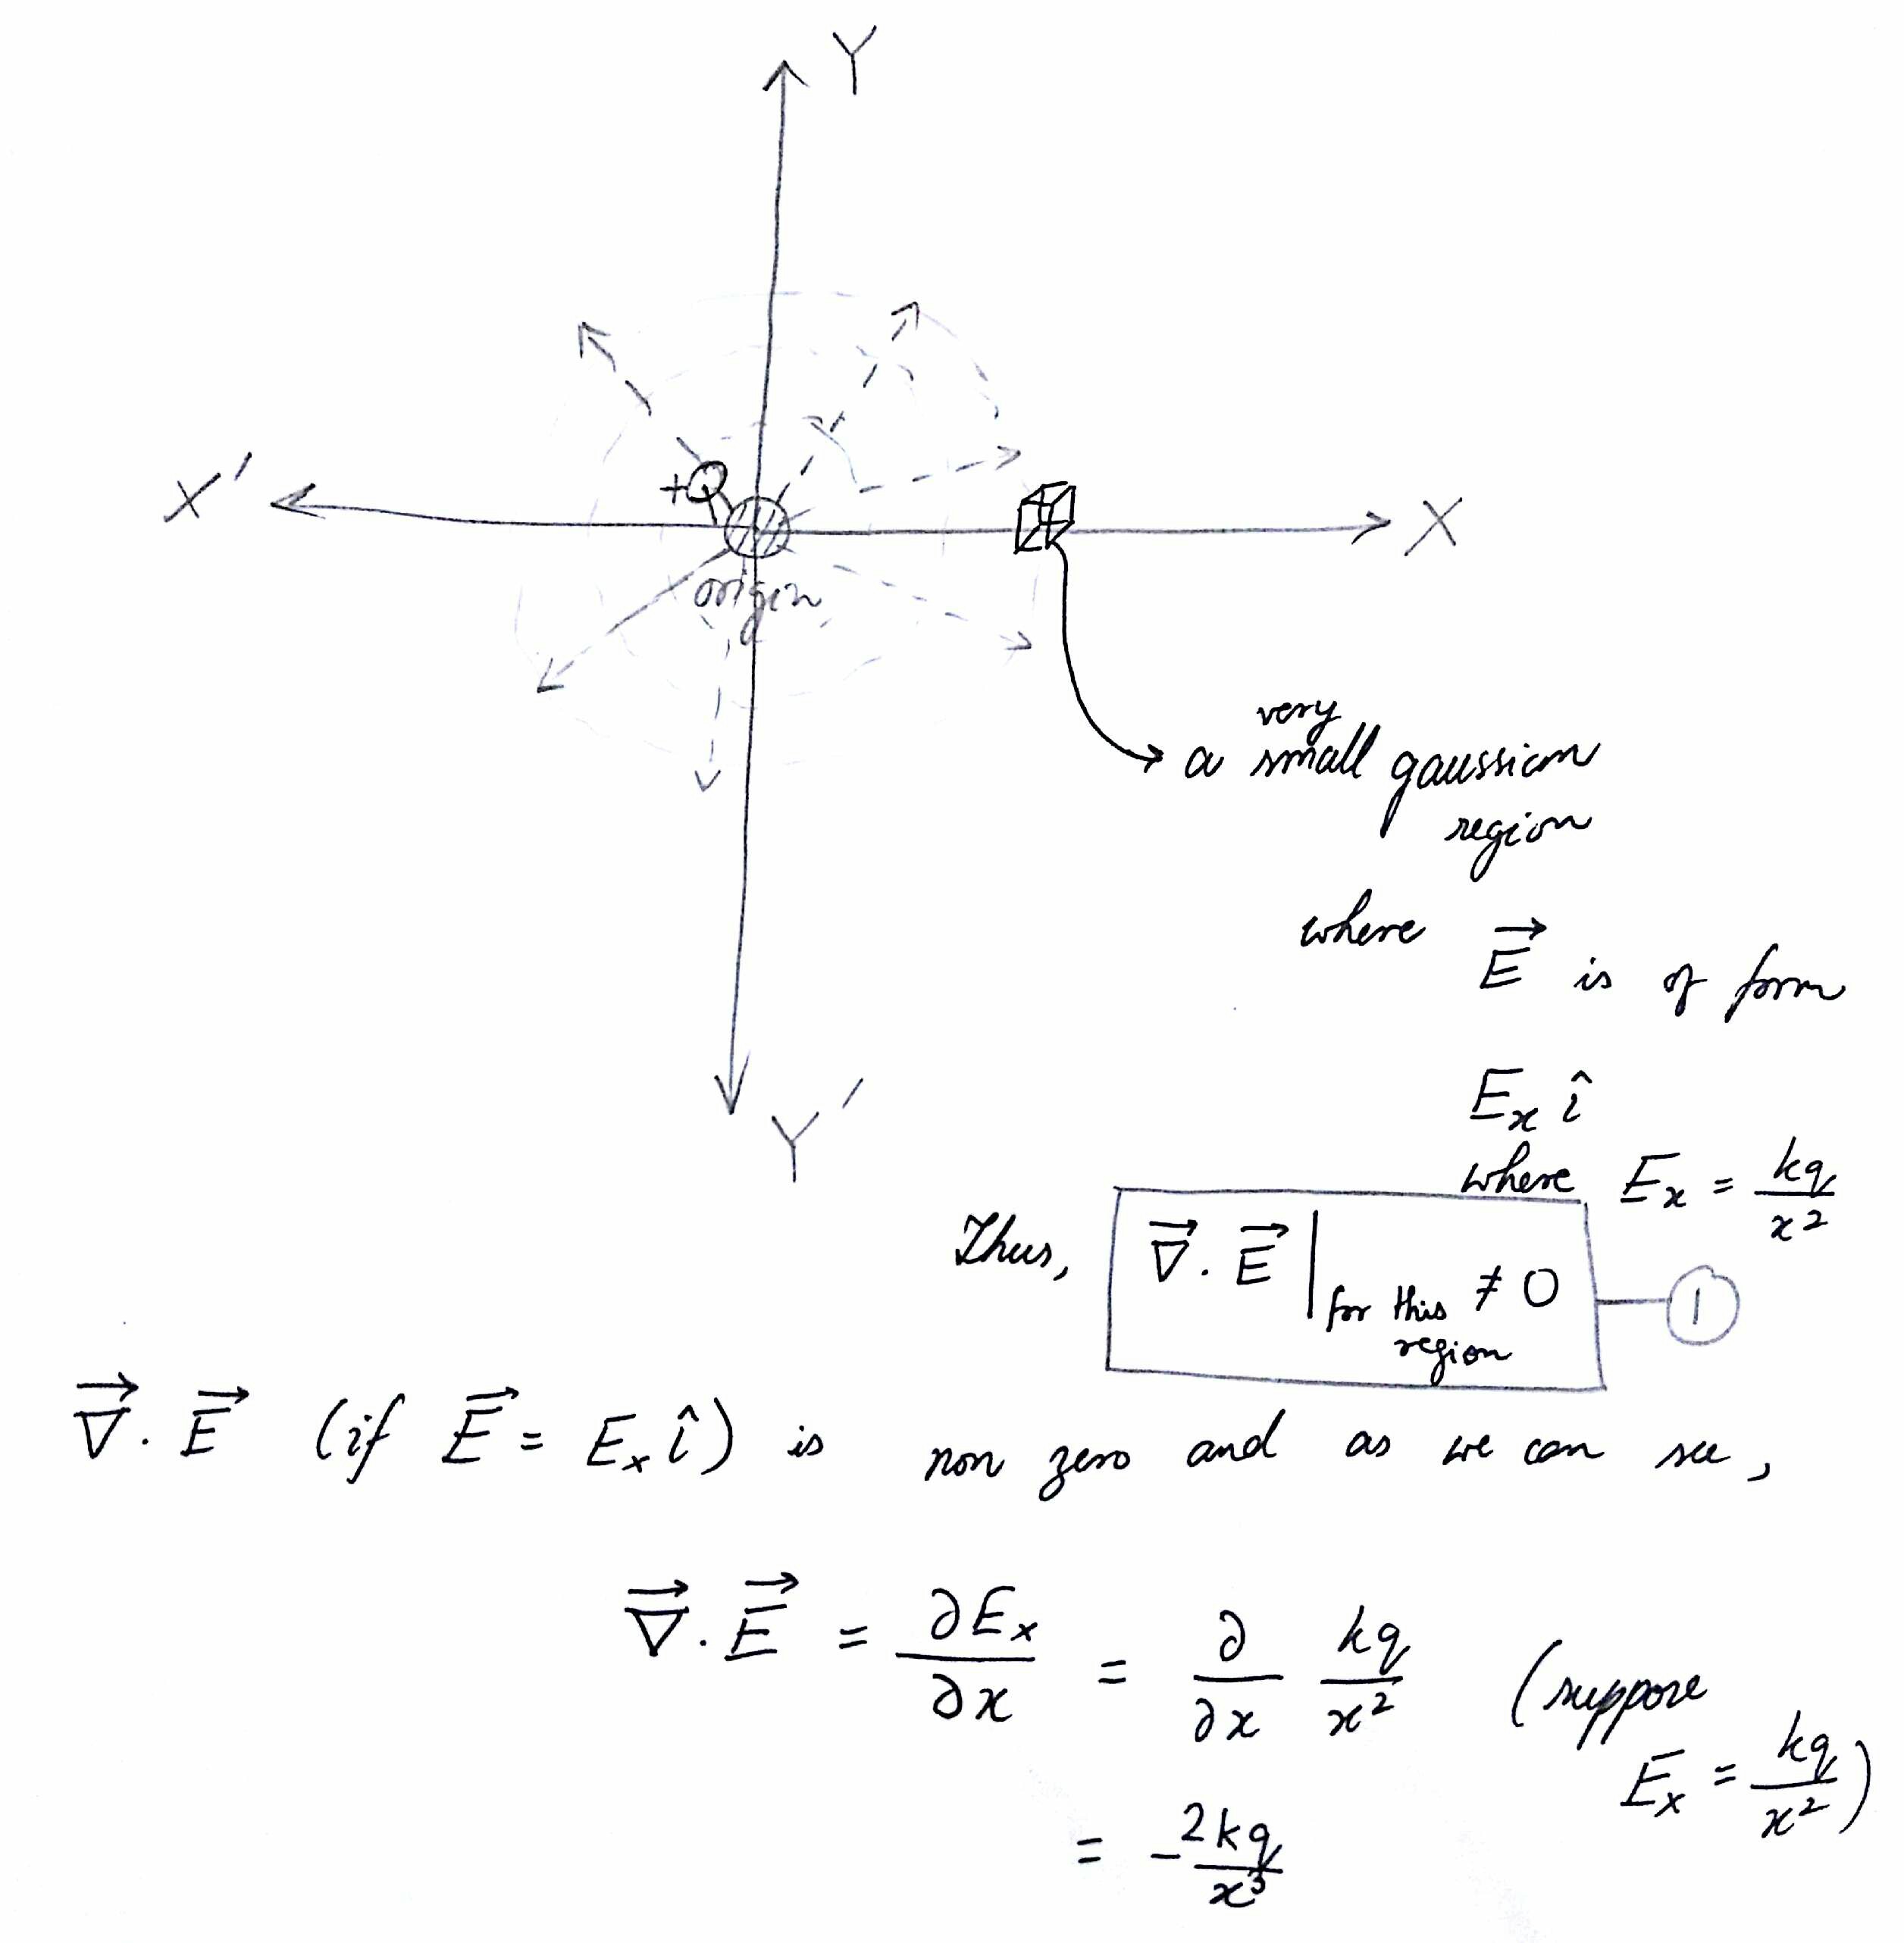 Y
X'
+Q
X
origin
very
a small gaussian
region
where E⃗ is of form
Eₓ î
where Eₓ = kq/x²
Thus, ∇⃗ . E⃗ | for this region ≠ 0 — ①
Y'
∇⃗ . E⃗ (if E⃗ = Eₓ î) is non zero and as we can see,
∇⃗ . E⃗ = ∂Eₓ/∂x = ∂/∂x kq/x² (suppose
Eₓ = kq/x²)
= -2kq/x³